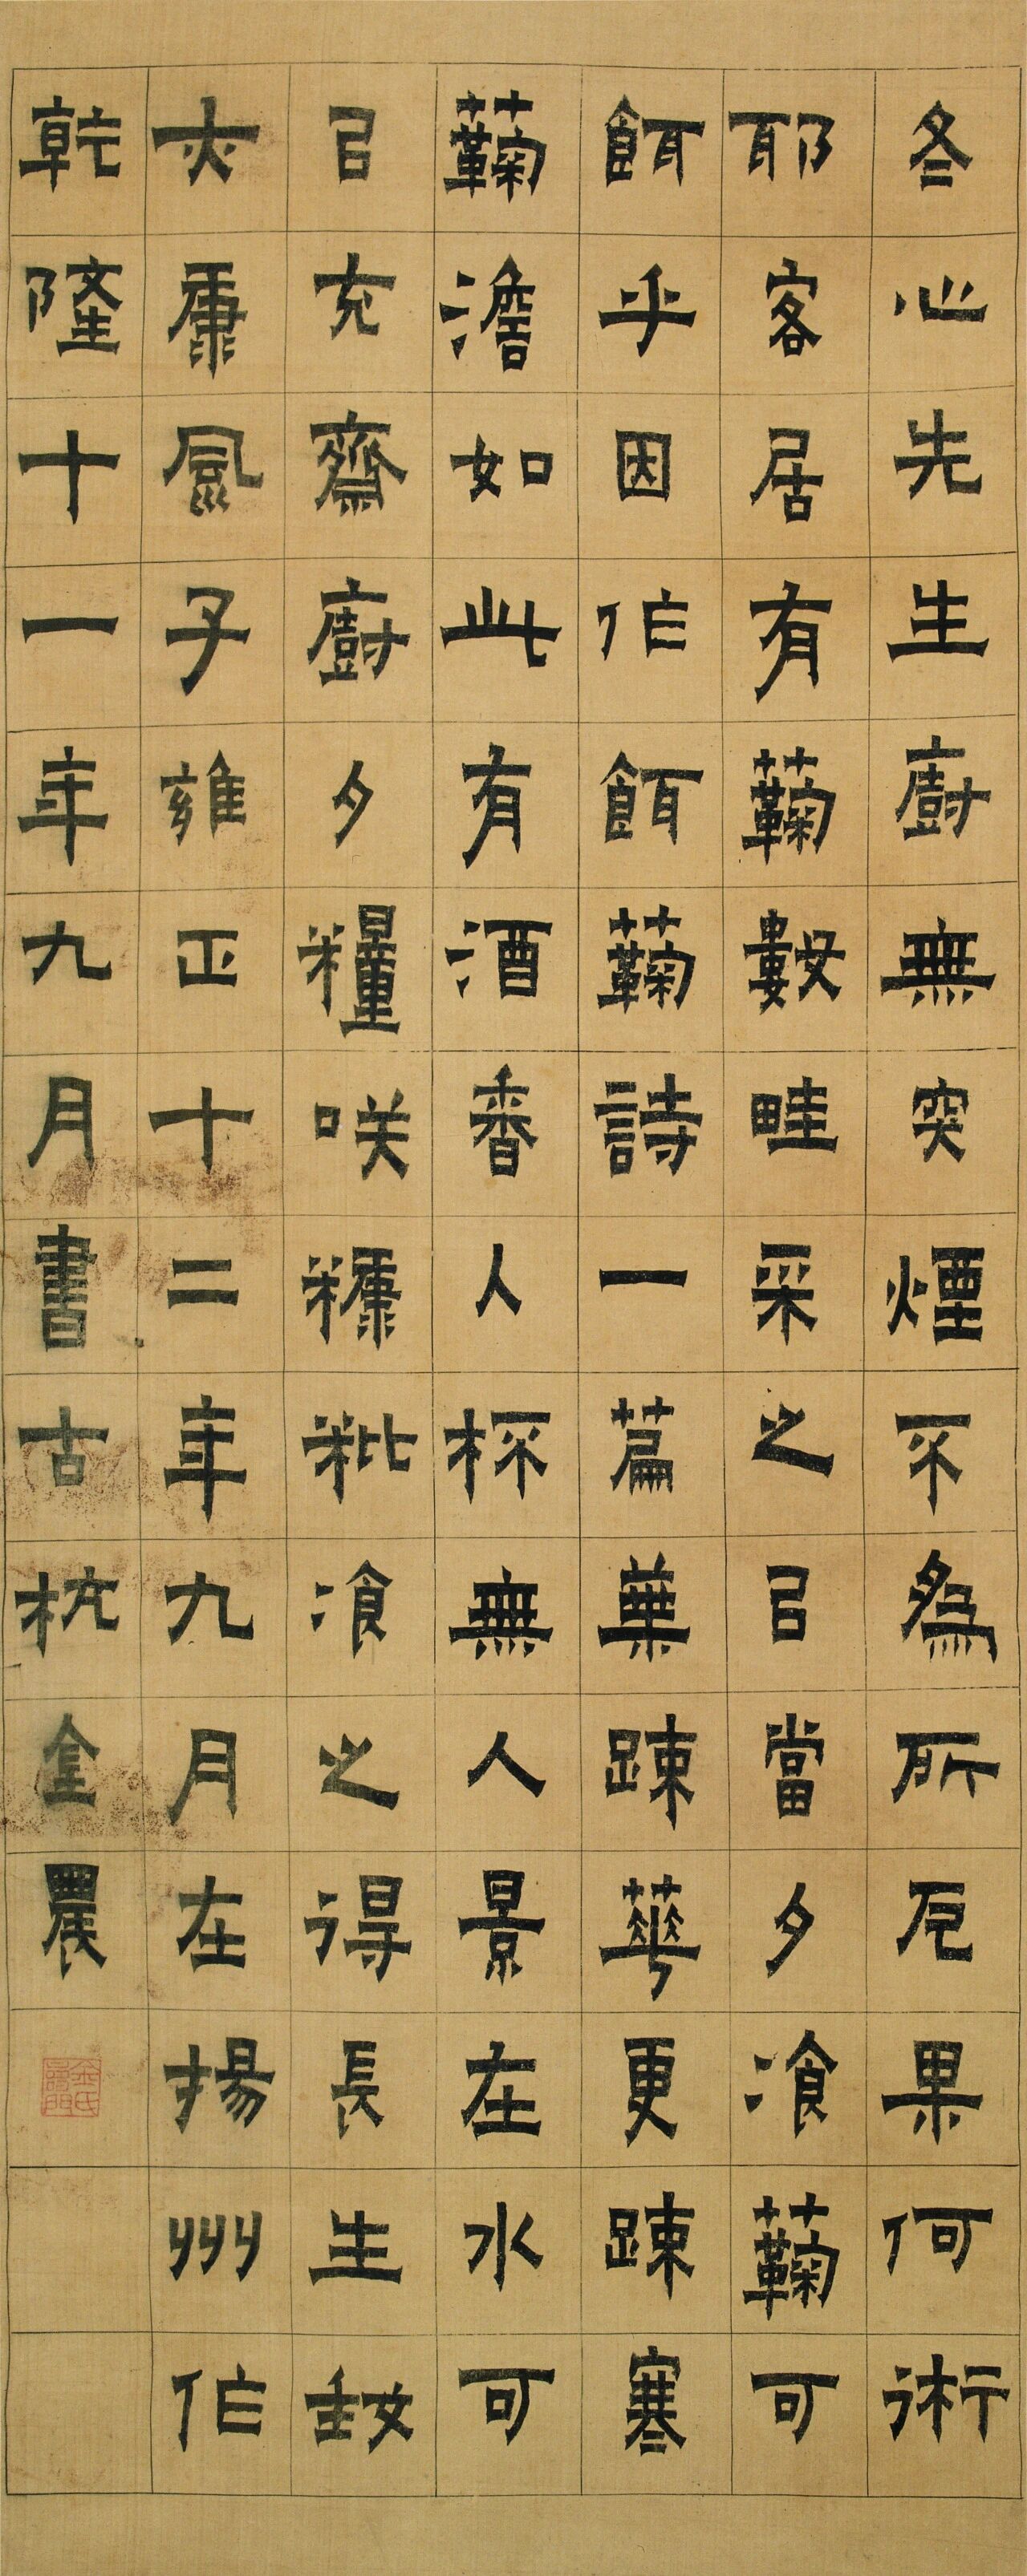 冬心先生廚無突煙不為所厄果何術
耶客居有蘜數畦采之㠯當夕飡蘜可
餌乎因作餌蘜詩一篇葉踈華更踈寒
蘜澹如此有酒香人杯無人景在水可
㠯充齋廚夕糧咲糠粃飡之得長生
亦康風子雍正十二年九月在揚州作
乾隆十一年九月書古杭金農
金氏壽門